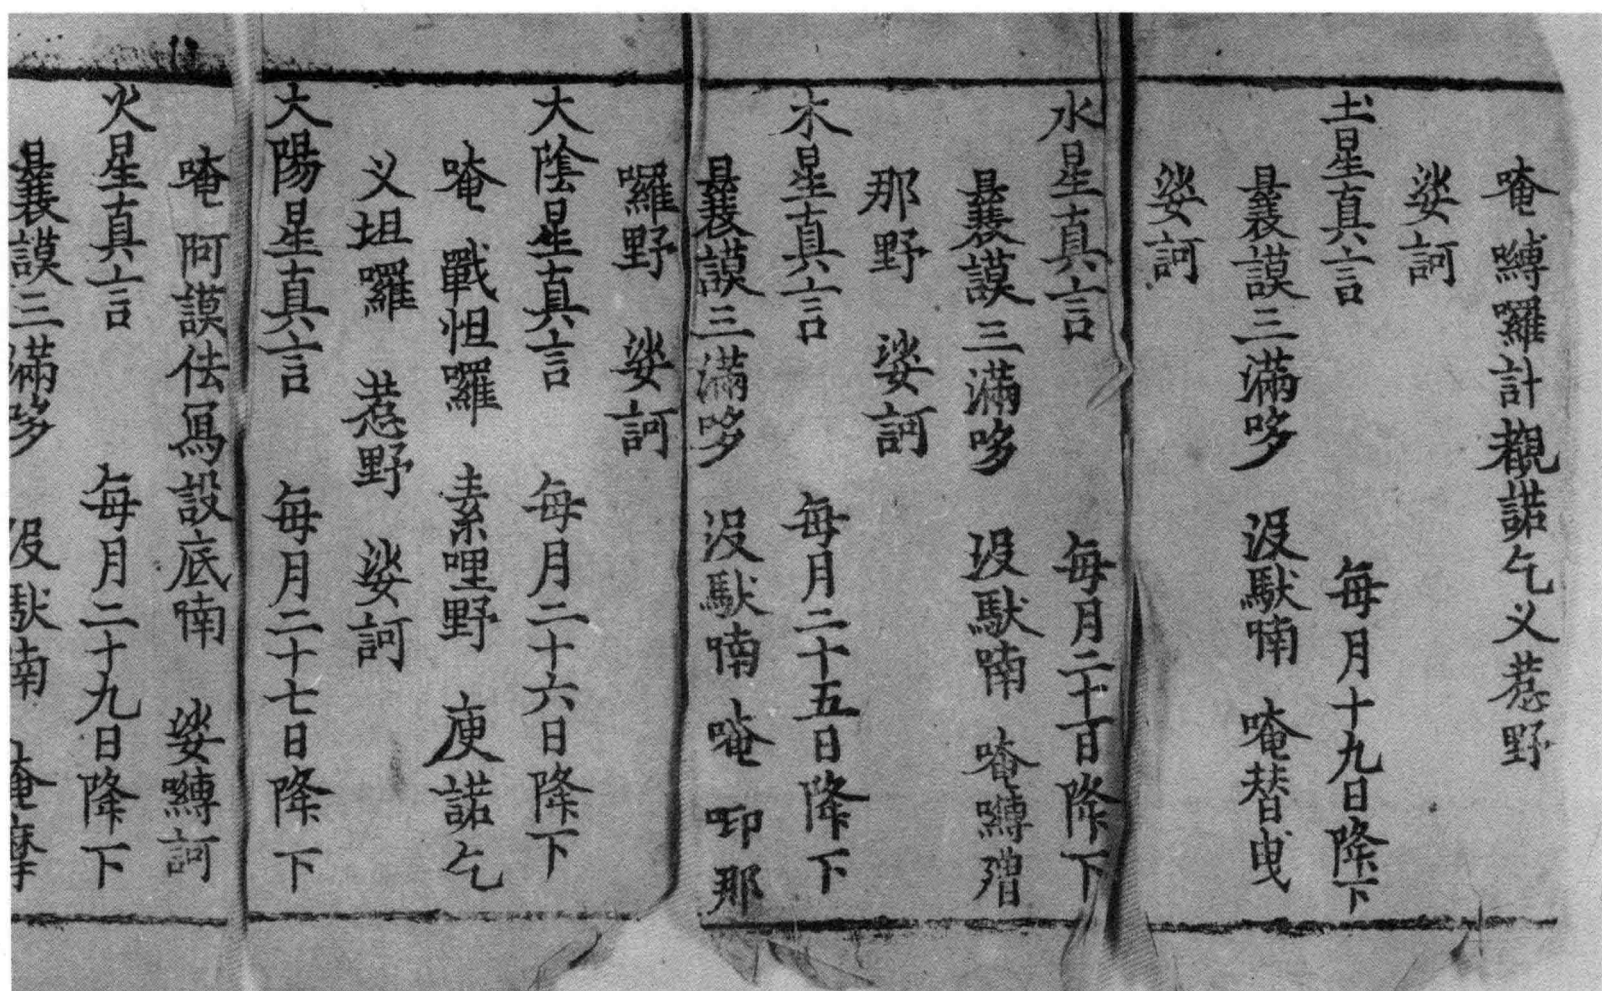 唵嚩囉計覩諾乞义惹野
娑訶
土星真言 每月十九日降下
曩謨三滿哆 没馱喃 唵替曳
娑訶
水星真言 每月二十百降下
曩謨三滿哆 没馱喃 唵嚩
那野 娑訶
木星真言 每月二十五日降下
曩謨三滿哆 没馱喃 唵 印那
囉野 娑訶
大陰星真言 每月二十六日降下
唵 戰怛囉 素哩野 庾諾乞
义坦囉 惹野 娑訶
大陽星真言 每月二十七日降下
唵 阿謨佉寫設底喃 娑嚩訶
火星真言 每月二十九日降下
曩謨三滿哆 没馱喃 唵摩